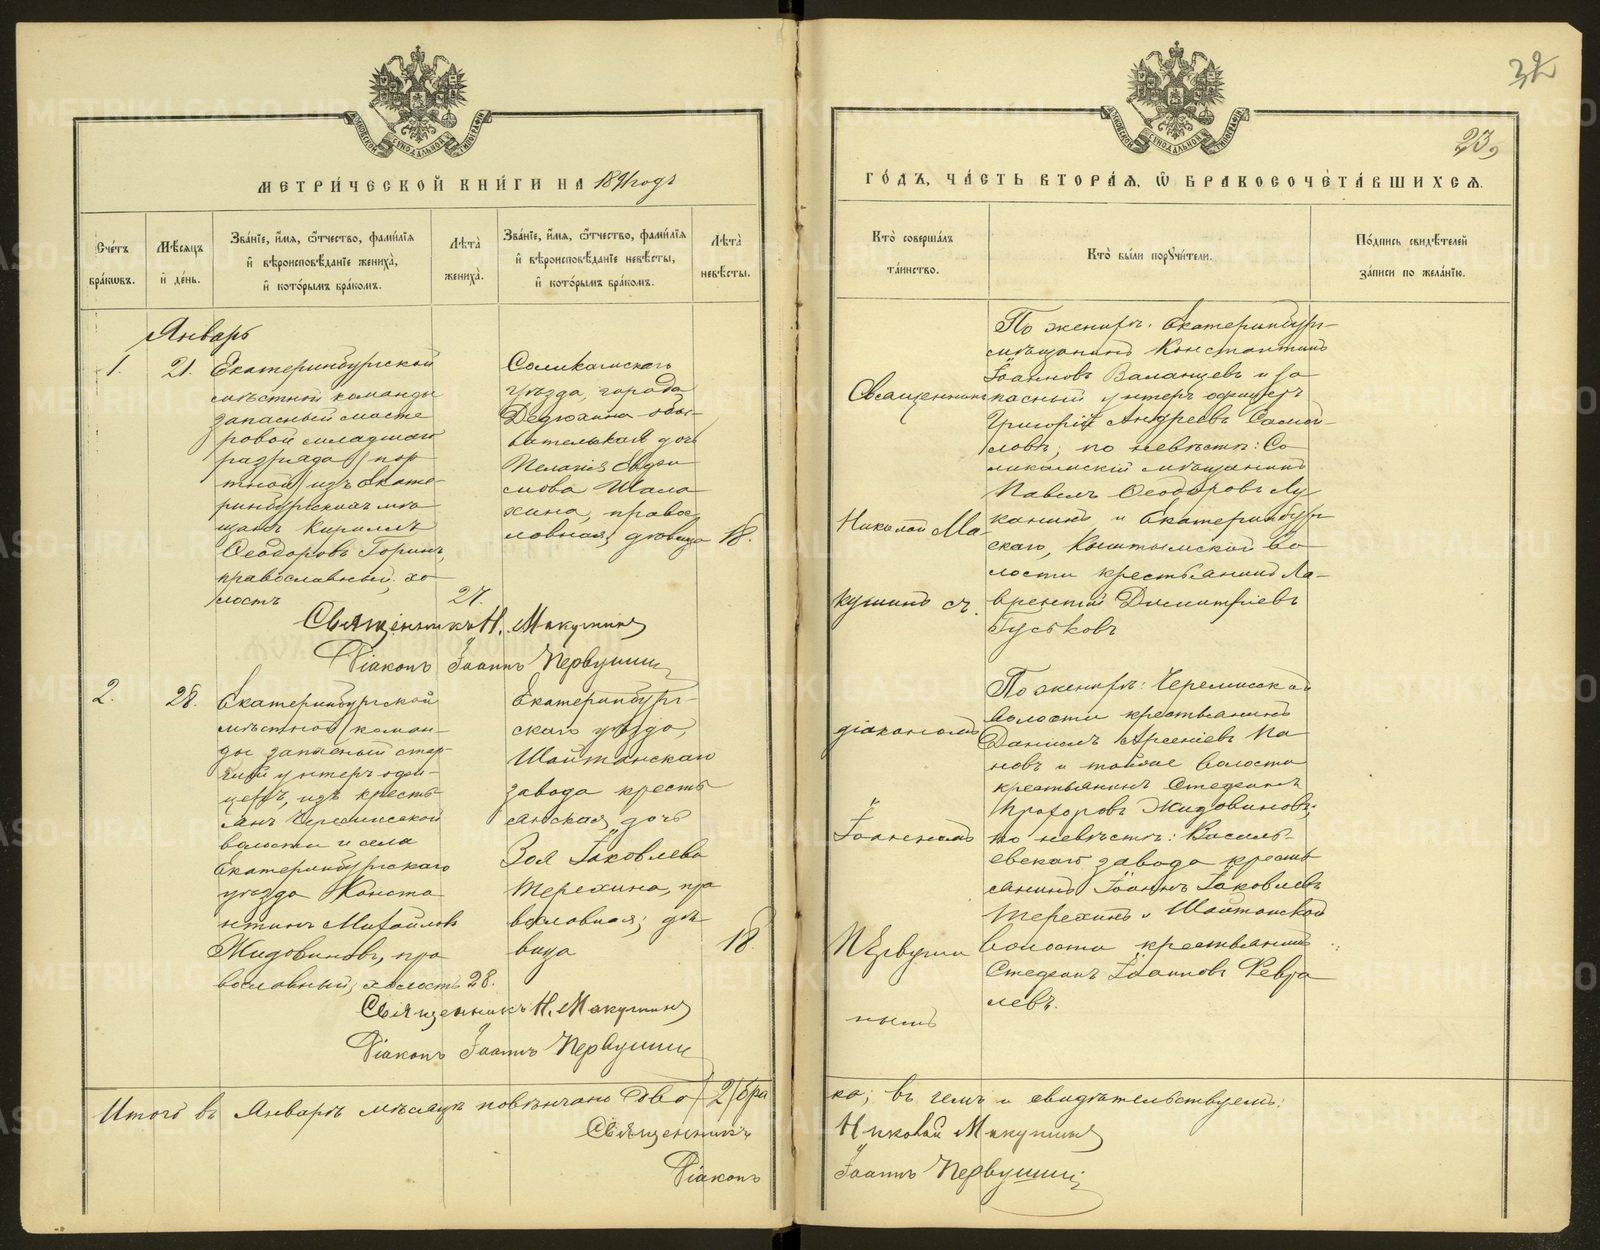 МЕТРИЧЕСКОЙ КНИГИ НА 1891 годъ
Счетъ браковъ.
Мѣсяцъ и день.
Званіе, имя, отчество, фамилія и вѣроисповѣданіе жениха, и которымъ бракомъ.
Лѣта жениха.
Званіе, имя, отчество, фамилія и вѣроисповѣданіе невѣсты, и которымъ бракомъ.
Лѣта невѣсты.
Январь
1.
21.
Екатеринбургской
мѣстной команды
запасный масте
ровой младшаго
разряда (пор
тной) изъ Екате-
ринбургскихъ мѣ
щанъ Кириллъ
Ѳеодоровъ Горинъ,
православный, хо
лостъ
27.
Соликамскаго
уѣзда, города
Дедюхина обы-
вательская дочь
Пелагія Евфи
мова Шала
хина, право
славная, дѣвица
18.
Священникъ Н. Макушинъ
Діаконъ Іоаннъ Первушинъ
2.
28.
Екатеринбургской
мѣстной коман-
ды запасный стар-
шій унтеръ офи-
церъ, изъ кресть
янъ Черемисской
волости и села
Екатеринбургскаго
уѣзда Конста
нтинъ Михайловъ
Жидовиновъ, пра
вославный, холостъ
28.
Екатеринбург-
скаго уѣзда,
Шайтанскаго
завода кресть
янская дочь
Зоя Іаковлева
Терехина, пра
вославная, дѣ
вица
18.
Священникъ Н. Макушинъ
Діаконъ Іоаннъ Первушинъ
Итого въ Январѣ мѣсяцѣ повѣнчано два /2/ бра
Священникъ
Діаконъ
32
23,
ГОДЪ, ЧАСТЬ ВТОРАЯ, Ѡ БРАКОСОЧЕТАВШИХСЯ.
Кто совершалъ таинство.
Кто были поручители.
Подпись свидѣтелей записи по желанію.
Священникъ
Николай Ма-
кушинъ съ
діакономъ
Іоанномъ
Первуши
нымъ
По женихѣ: Екатеринбург-
мѣщанинъ Константинъ
Іоанновъ Валанцевъ и за
пасный унтеръ офицеръ
Григорій Андреевъ Самой-
ловъ; по невѣстѣ: Со
ликамскій мѣщанинъ
Павелъ Ѳеодоровъ Лу
канинъ и Екатеринбург
скаго, Кыштымской во
лости крестьянинъ Ла-
врентій Димитріевъ
Гуськовъ
По женихѣ: Черемисской
волости крестьянинъ
Даніилъ Арсеніевъ Па
новъ и тойже волости
крестьянинъ Стефанъ
Прохоровъ Жидовиновъ;
по невѣстѣ: Василь-
евскаго завода кресть
янинъ Іоаннъ Іаковлевъ
Терехинъ и Шайтанской
волости крестьянинъ
Стефанъ Іоанновъ Февра
левъ.
ка; въ чемъ и свидѣтельствуемъ:
Николай Макушинъ
Іоаннъ Первушинъ